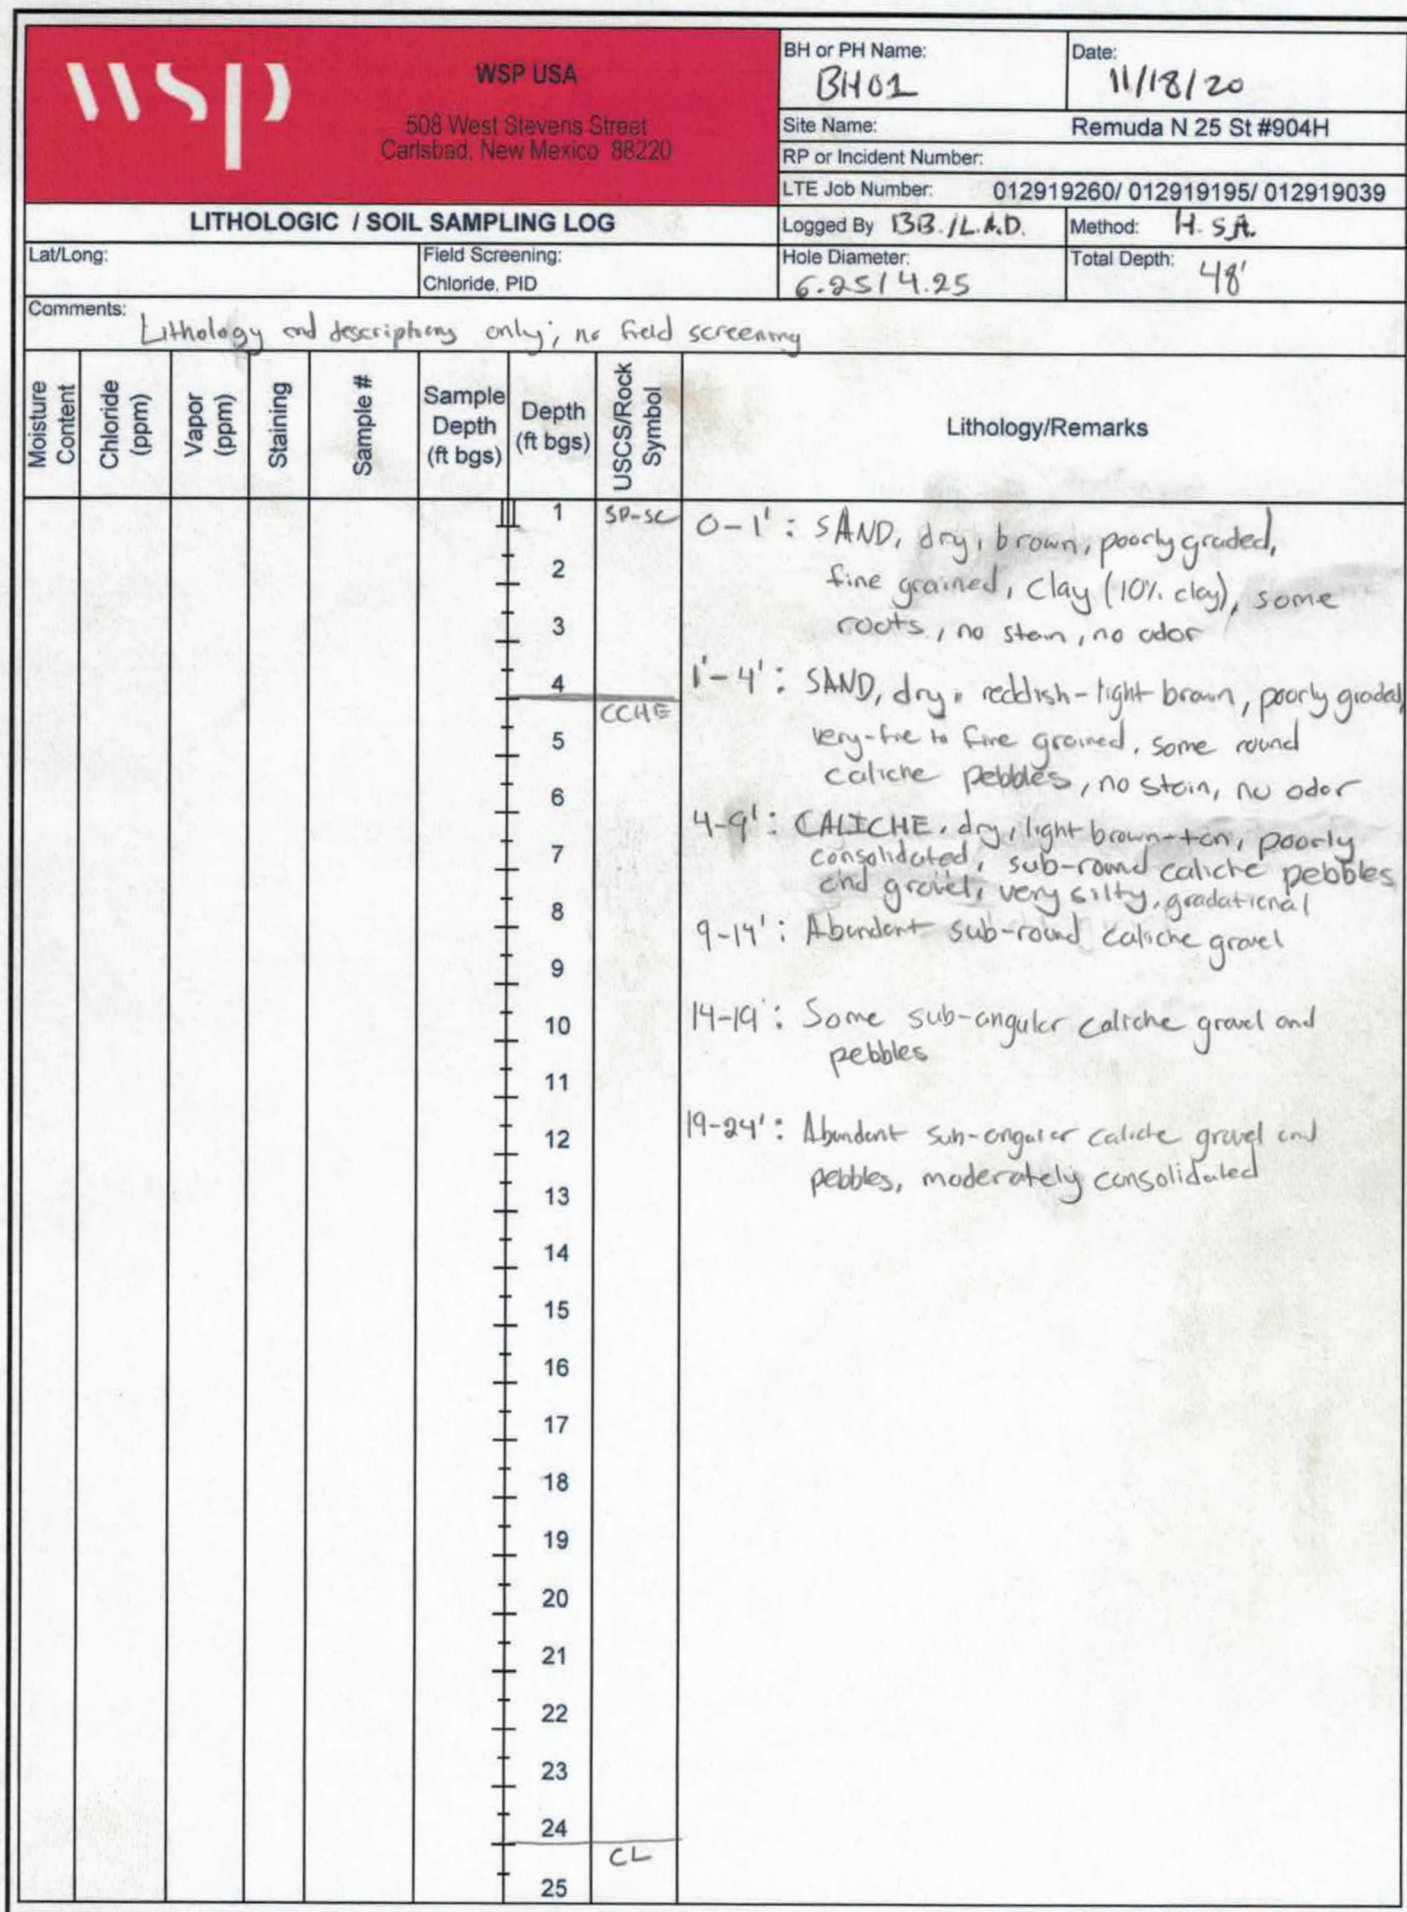 wsp
WSP USA
508 West Stevens Street
Carlsbad, New Mexico 88220
BH or PH Name:
BH01
Date:
11/18/20
Site Name: Remuda N 25 St #904H
RP or Incident Number:
LTE Job Number: 012919260/ 012919195/ 012919039
LITHOLOGIC / SOIL SAMPLING LOG
Logged By BB./L.A.D.
Method: H.S.A.
Lat/Long:
Field Screening:
Chloride, PID
Hole Diameter:
6.25/4.25
Total Depth: 48'
Comments:
Lithology and descriptions only; no field screening
Moisture
Content
Chloride
(ppm)
Vapor
(ppm)
Staining
Sample #
Sample
Depth
(ft bgs)
Depth
(ft bgs)
USCS/Rock
Symbol
Lithology/Remarks
1
SP-SC
0-1': SAND, dry, brown, poorly graded,
fine grained, clay (10% clay), some
roots, no stain, no odor
2
3
4
1'-4': SAND, dry, reddish-light brown, poorly graded,
very-fine to fine grained, some round
caliche pebbles, no stain, no odor
CCHE
5
6
4-9': CALICHE, dry, light brown-tan, poorly
consolidated, sub-round caliche pebbles
and gravel, very silty, gradational
7
8
9-14': Abundant sub-round caliche gravel
9
10
14-19': Some sub-angular caliche gravel and
pebbles
11
12
19-24': Abundant sub-angular caliche gravel and
pebbles, moderately consolidated
13
14
15
16
17
18
19
20
21
22
23
24
CL
25